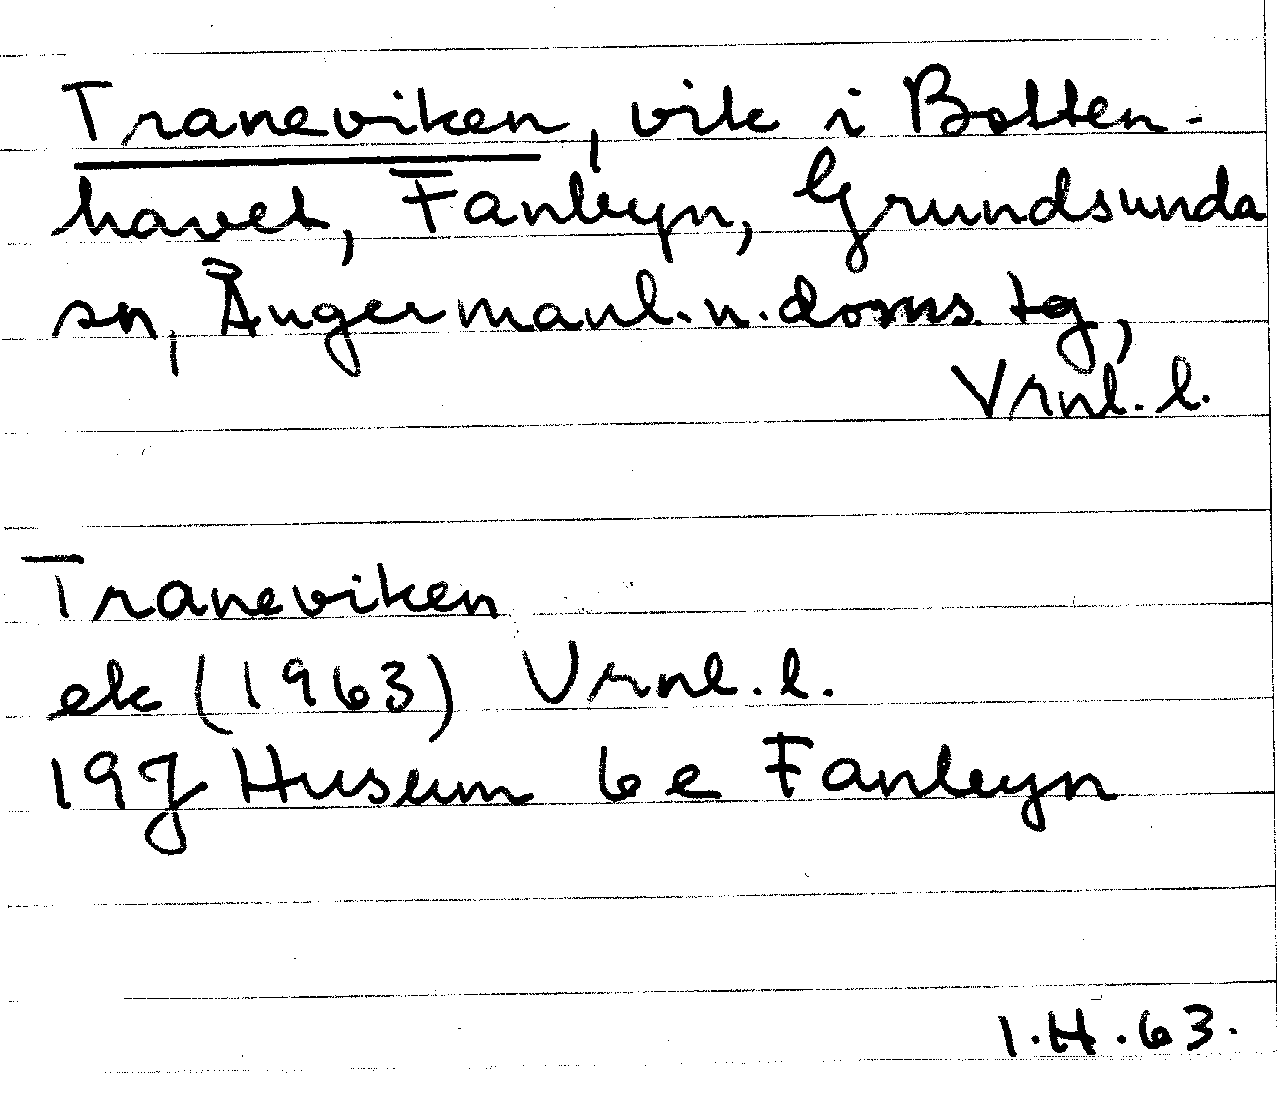 Traneviken, vik i Botten-
havet, Fanbyn, Grundsunda
sn, Ångermanl. n. doms. tg,
Vrnl. l.
Traneviken
ek (1963) Vrnl. l.
19J Husum 6e Fanbyn
I.H.63.